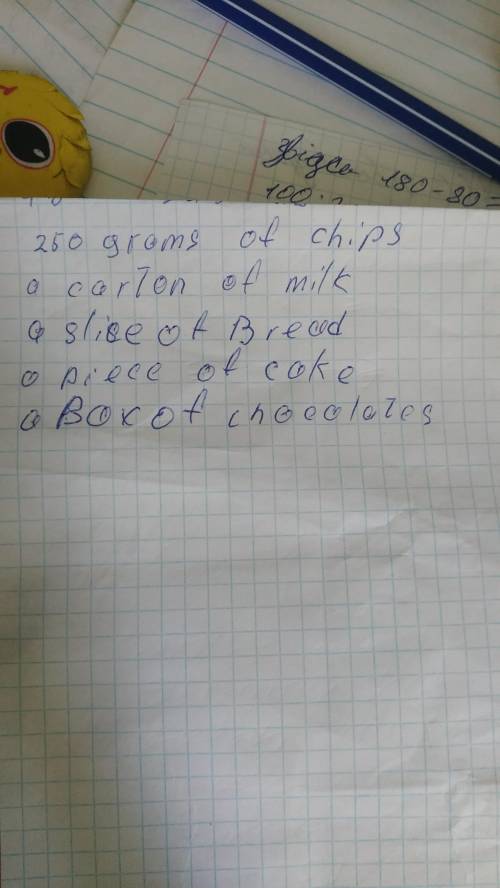 звідси 180-80=
100:
250 grams of chips
a carton of milk
a slice of Bread
a piece of cake
a Box of chocolates